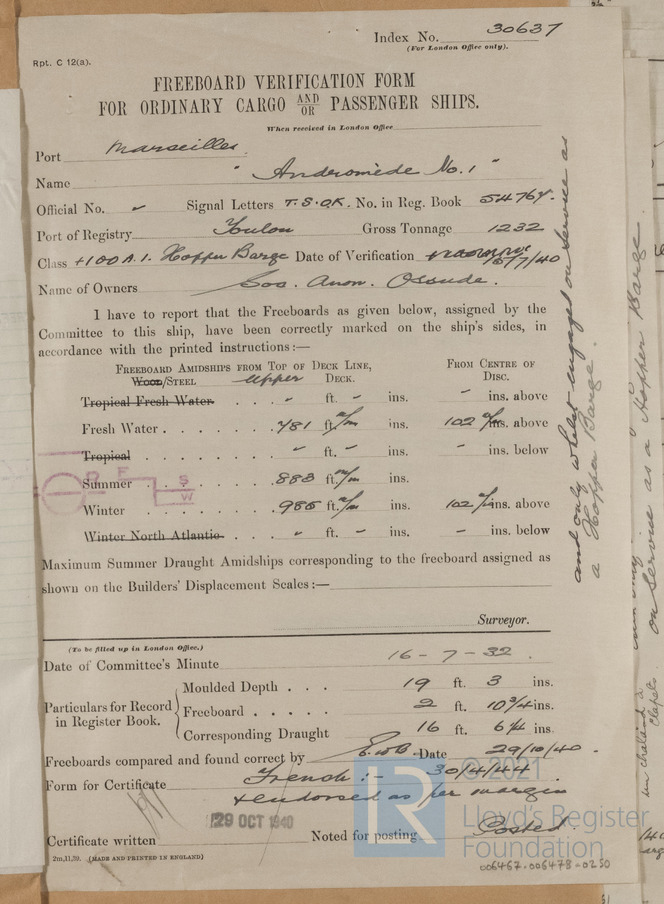 Index No. 30637
(For London Office only).
Rpt. C 12(a).
FREEBOARD VERIFICATION FORM
FOR ORDINARY CARGO AND/OR PASSENGER SHIPS.
When received in London Office
Port Marseilles
Name "Andromède No. 1"
Official No. " Signal Letters T.S.O.K. No. in Reg. Book 54764.
Port of Registry Toulon Gross Tonnage 1232
Class +100 A.1. Hopper Barge Date of Verification 15/7/40
Name of Owners Soc. Anon. Ossude.
I have to report that the Freeboards as given below, assigned by the
Committee to this ship, have been correctly marked on the ship's sides, in
accordance with the printed instructions:—
FREEBOARD AMIDSHIPS FROM TOP OF DECK LINE, FROM CENTRE OF
WOOD/STEEL Upper DECK. DISC.
Tropical Fresh Water . . . " ft. " ins. " ins. above
Fresh Water . . . . . . . 781 ft. m/m ins. 102 m/m ins. above
Tropical . . . . . . . . " ft. " ins. " ins. below
Summer . . . . . . . 883 ft. m/m ins.
Winter . . . . . . . 985 ft. m/m ins. 102 m/m ins. above
Winter North Atlantic . . . " ft. " ins. " ins. below
D F S
W
Maximum Summer Draught Amidships corresponding to the freeboard assigned as
shown on the Builders' Displacement Scales:—
Surveyor.
(To be filled up in London Office.)
Date of Committee's Minute 16-7-32.
Particulars for Record in Register Book.
Moulded Depth . . . 19 ft. 3 ins.
Freeboard . . . . . 2 ft. 10 3/4 ins.
Corresponding Draught 16 ft. 6 1/4 ins.
Freeboards compared and found correct by Date 29/10/40.
Form for Certificate French :- 30/4/44
+ endorsed as per margin
29 OCT 1940
Certificate written Noted for posting Posted.
2m,11,39. (MADE AND PRINTED IN ENGLAND)
and only whilst engaged on service as
a Hopper Barge.
on service as a Hopper Barge.
© 2021
Lloyd's Register
Foundation
006467-006478-0250